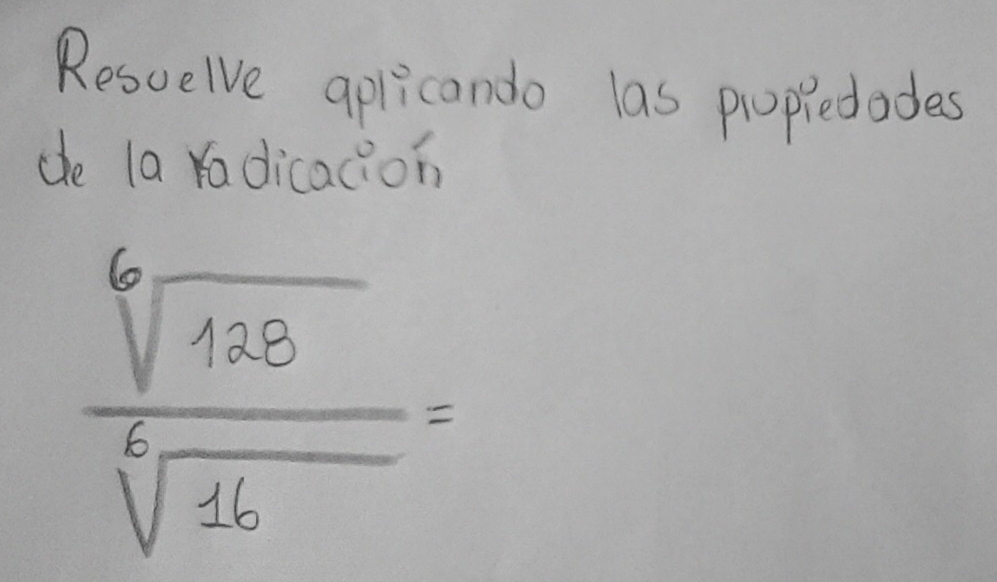 Resuelve aplicando las propiedades
de la radicación
6√128
=
6√16